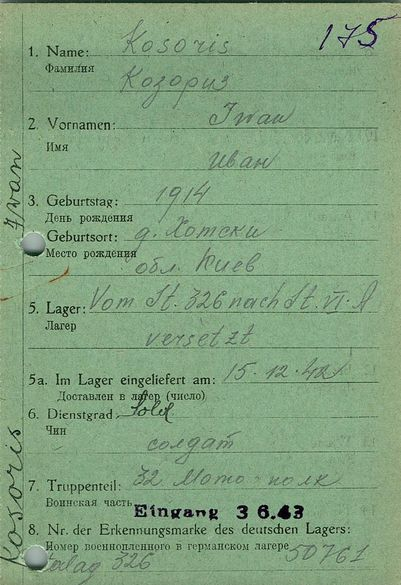 175
1. Name: Kosoris
Фамилия
Козориз
2. Vornamen: Iwan
Имя
Иван
3. Geburtstag: 1914
День рождения
Geburtsort: д. Хотски
Место рождения
обл. Киев
5. Lager: Vom St. 326 nach St. VI. A
Лагер
versetzt
5a. Im Lager eingeliefert am: 15.12.42
Доставлен в лагер (число)
6. Dienstgrad Sold
Чин
солдат
7. Truppenteil: 32 Мото-полк
Воинская часть
Eingang 3 6.43
8. Nr. der Erkennungsmarke des deutschen Lagers:
Номер военнопленного в германском лагере
Stalag 326 50761
Kosoris Iwan